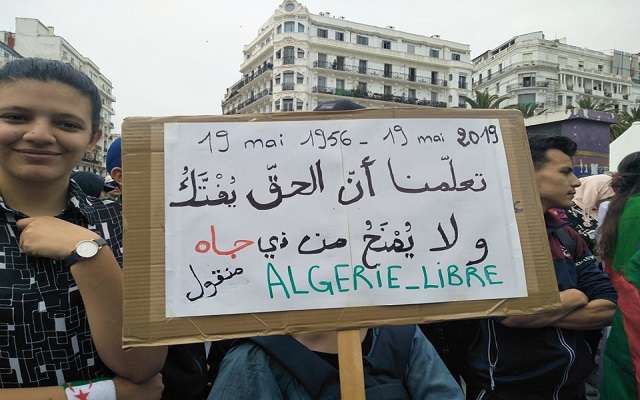 19 mai 1956 - 19 mai 2019
تعلّمنا أنّ الحقّ يُفْتَكُّ
ولا يُمْنَحُ من ذي جاه
منقول ALGERIE_LIBRE